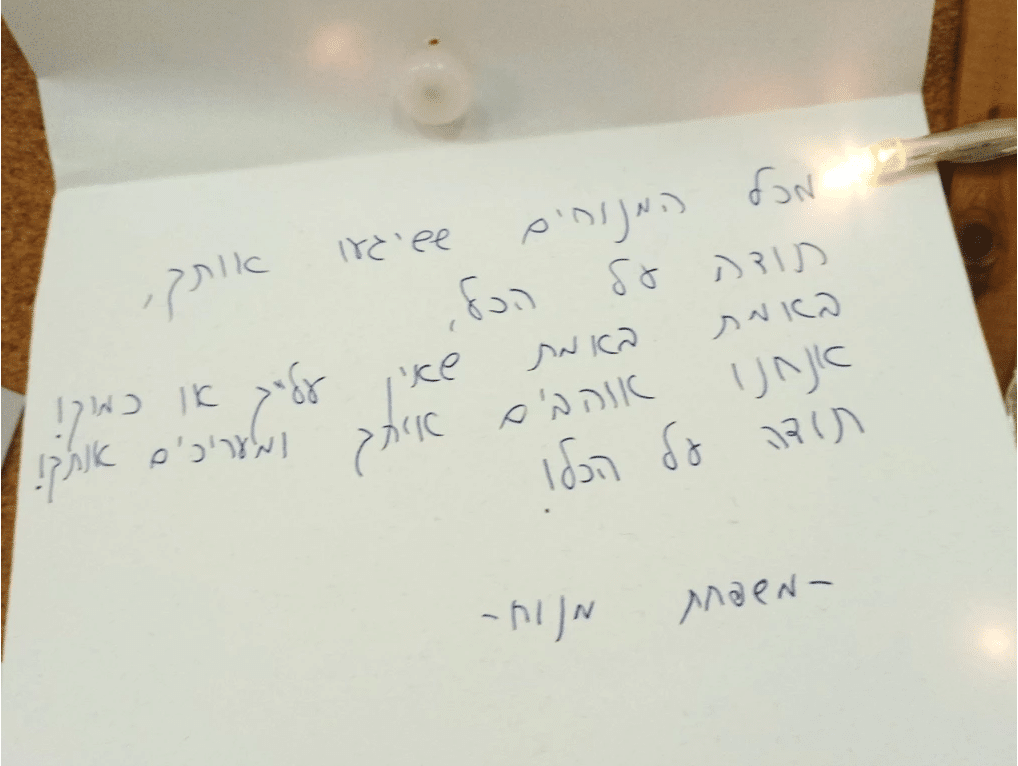 מכל המנוחים ששיגעו אותך,
תודה על הכל,
באמת באמת שאין עלייך או כמוך!
אנחנו אוהבים אותך ומעריכים אותך!
תודה על הכל!
-משפחת מנוח-